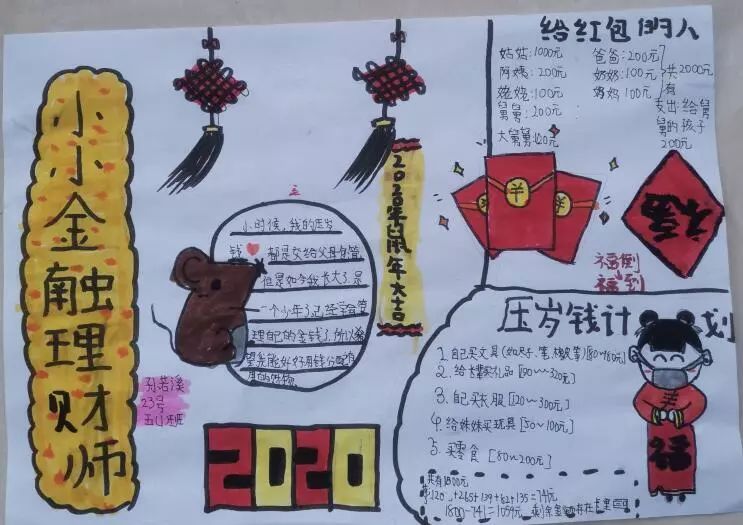 小小金融理财师
小时候，我的压岁
钱❤都是交给父母保管，
但是如今我长大了，是
一个少年了，已经会管
理自己的金钱了，所以希
望我能好好用钱分配
2020年鼠年大吉
孙若溪
23号
2020
给红包的人
姑姑：1000元 爸爸：200元
阿姨：200元 奶奶：100元 共2000元
姥姥：100元 妈妈：100元 有
舅舅：200元 支出：给舅
大舅舅：100元 舅的孩子
200元
福
福倒
福到
压岁钱计划
1. 自己买文具（如尺子、笔、橡皮等）[80~160元]
2. 给长辈买礼品 [90~~320元]
3. 自己买衣服 [120~300元]
4. 给妹妹买玩具 [50~100元]
5. 买零食 [80~200元]
共有1800元
120+265+139+82+135=741元
1800-741=1059元
福